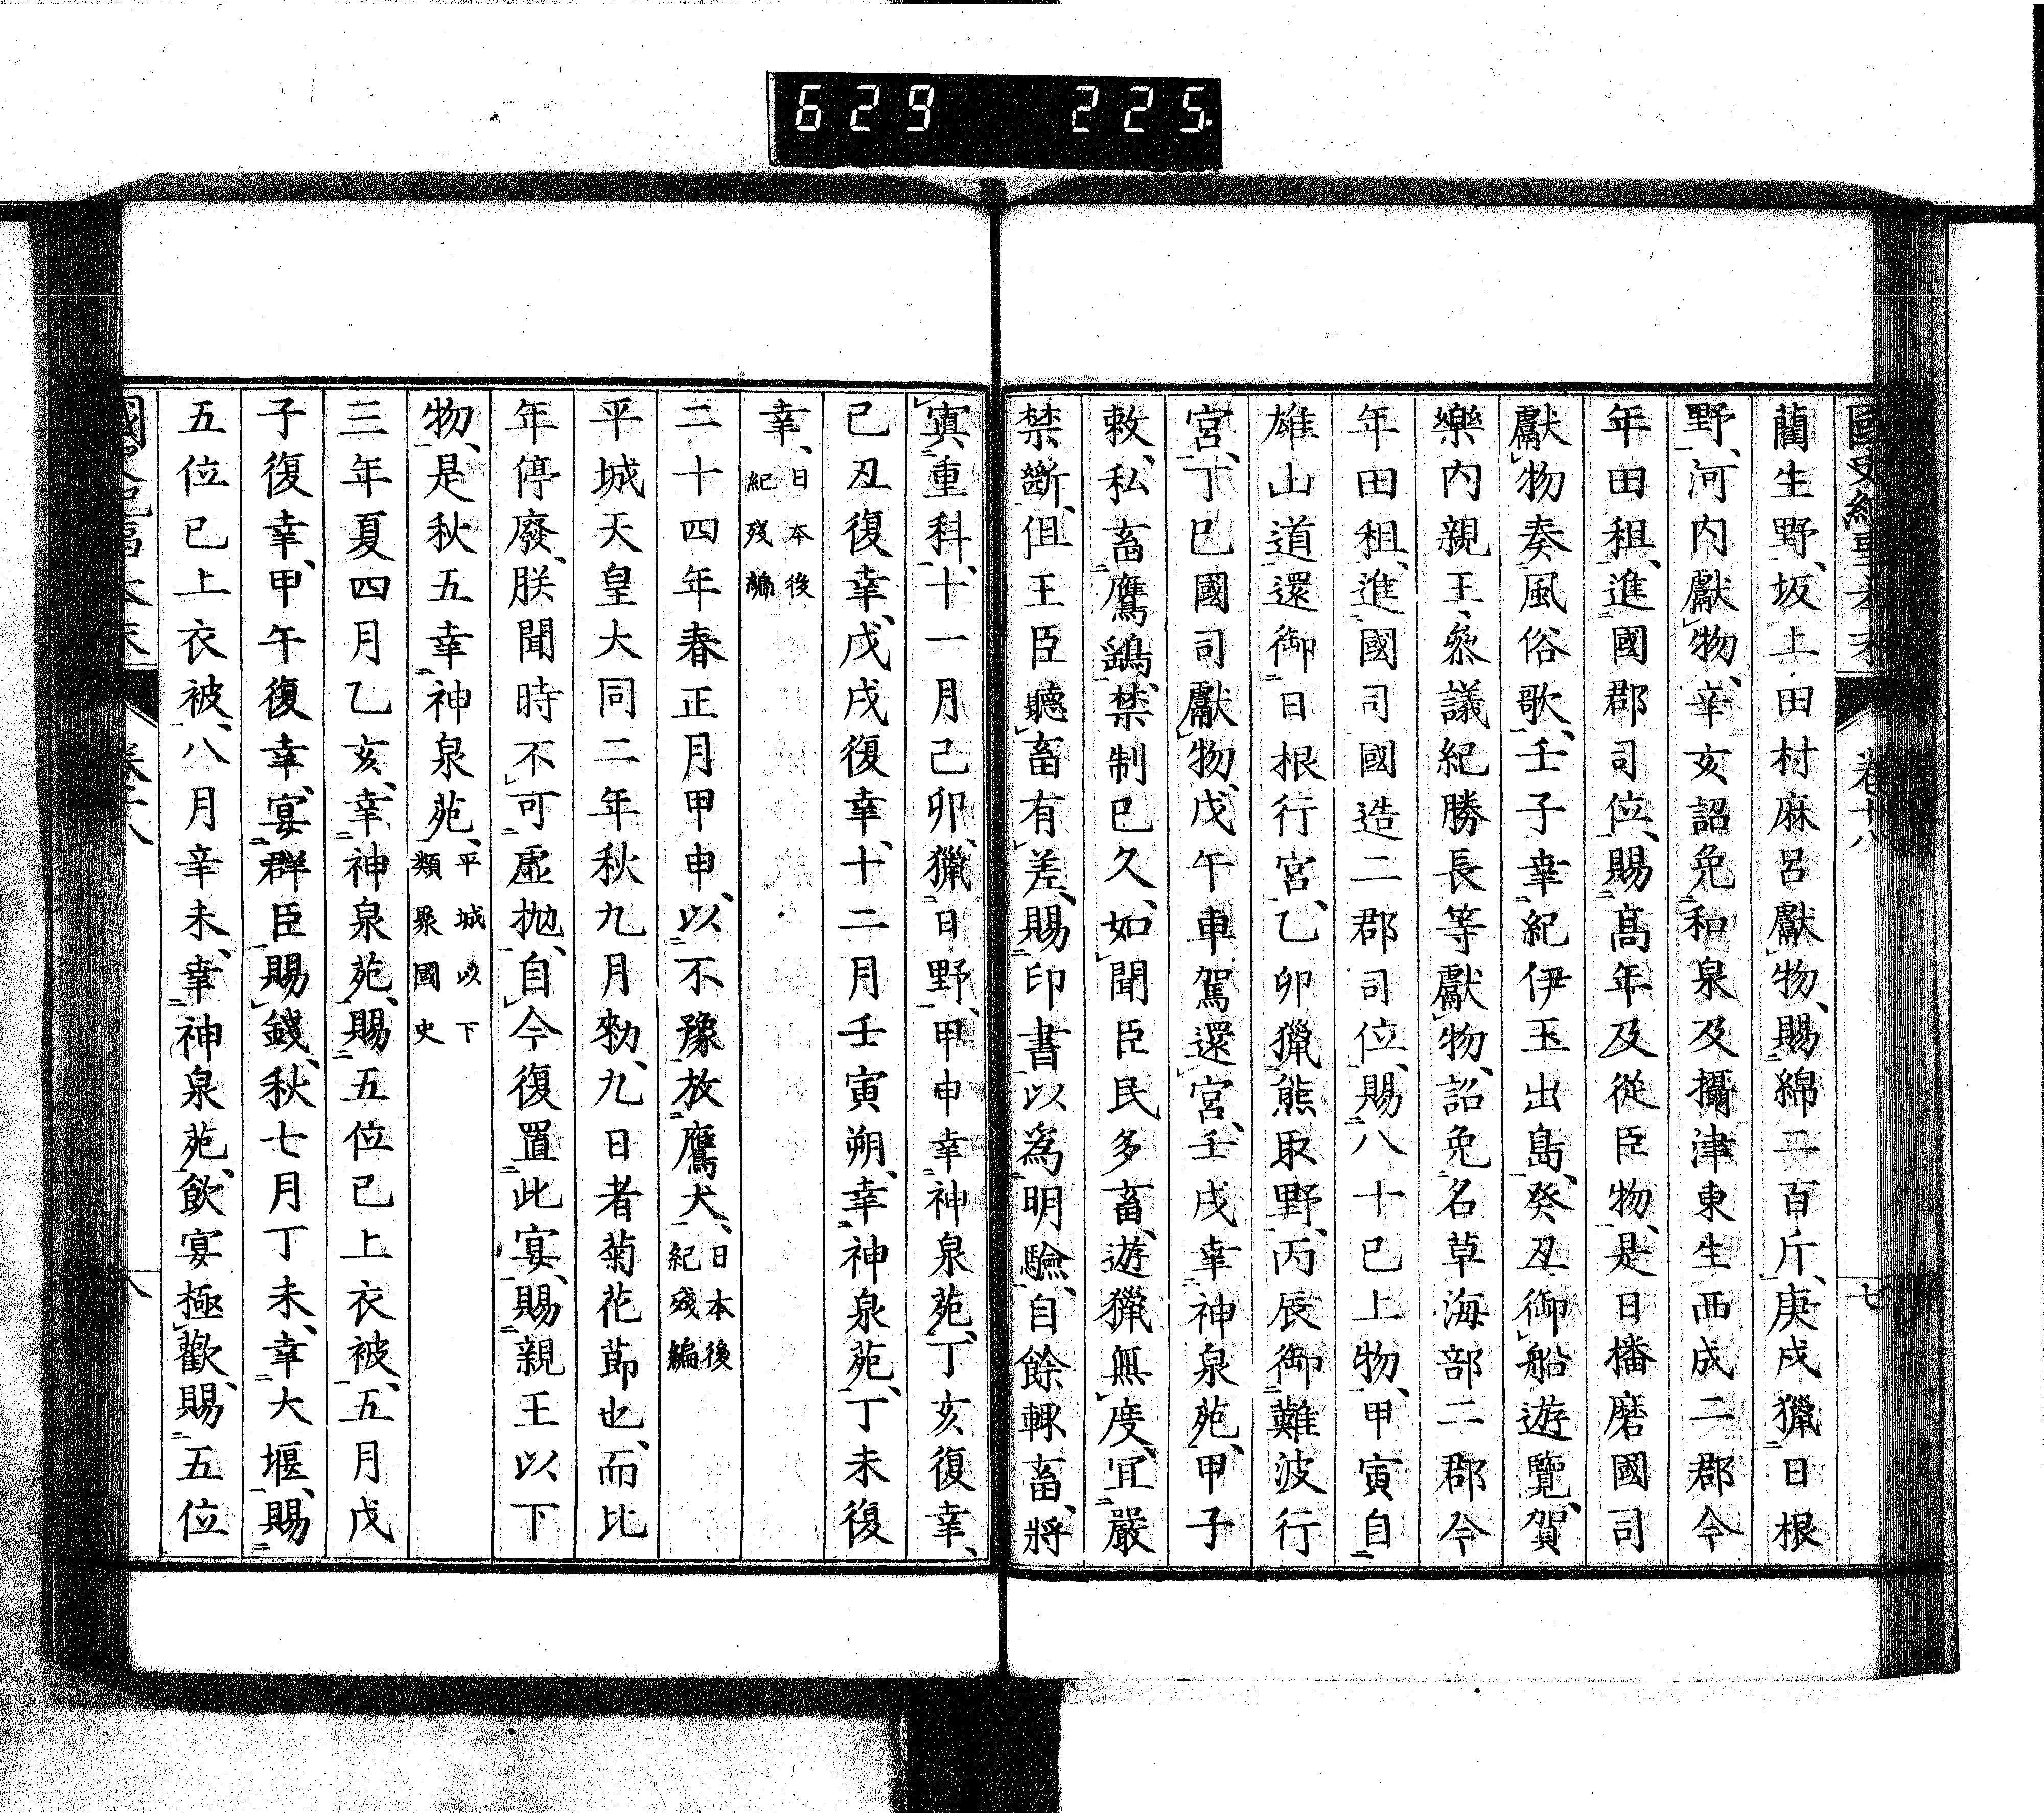 629 225
國史紀事本末 卷十八 七
藺生野、坂上田村麻呂獻物、賜綿二百斤、庚戌獵日根
野、河内獻物、辛亥詔免和泉及攝津東生西成二郡今
年田租、進國郡司位、賜髙年及從臣物、是日播磨國司
獻物奏風俗歌、壬子幸紀伊玉出島、癸丑御船遊覽、賀
樂内親王、叅議紀勝長等獻物、詔免名草海部二郡今
年田租、進國司國造二郡司位、賜八十已上物、甲寅自
雄山道還御日根行宮、乙卯獵熊取野、丙辰御難波行
宮、丁巳國司獻物、戊午車駕還宮、壬戌幸神泉苑、甲子
敕、私畜鷹鷂、禁制已久、如聞臣民多畜、遊獵無度、宜嚴
禁斷、但王臣聽畜有差、賜印書以爲明驗、自餘輙畜、將
寘重科、十一月己卯、獵日野、甲申幸神泉苑、丁亥復幸、
己丑復幸、戊戌復幸、十二月壬寅朔、幸神泉苑、丁未復
幸、日本後紀殘編
二十四年春正月甲申、以不豫放鷹犬、日本後紀殘編
平城天皇大同二年秋九月勑、九日者菊花節也、而比
年停廢、朕聞時不可虚拋、自今復置此宴、賜親王以下
物、是秋五幸神泉苑、平城以下類聚國史
三年夏四月乙亥、幸神泉苑、賜五位已上衣被、五月戊
子復幸、甲午復幸、宴群臣賜錢、秋七月丁未、幸大堰、賜
五位已上衣被、八月辛未、幸神泉苑、飲宴極歡、賜五位
國史紀事本末 卷十八 八